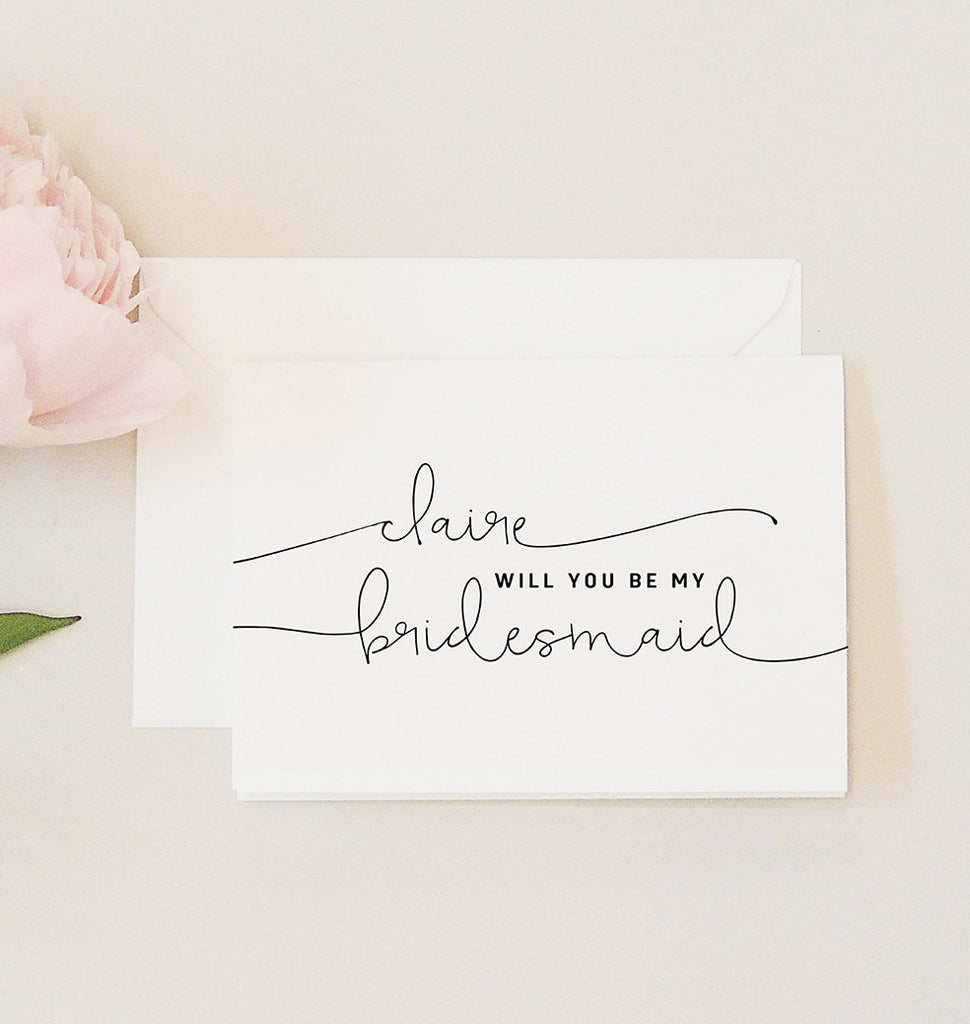 claire
WILL YOU BE MY
bridesmaid